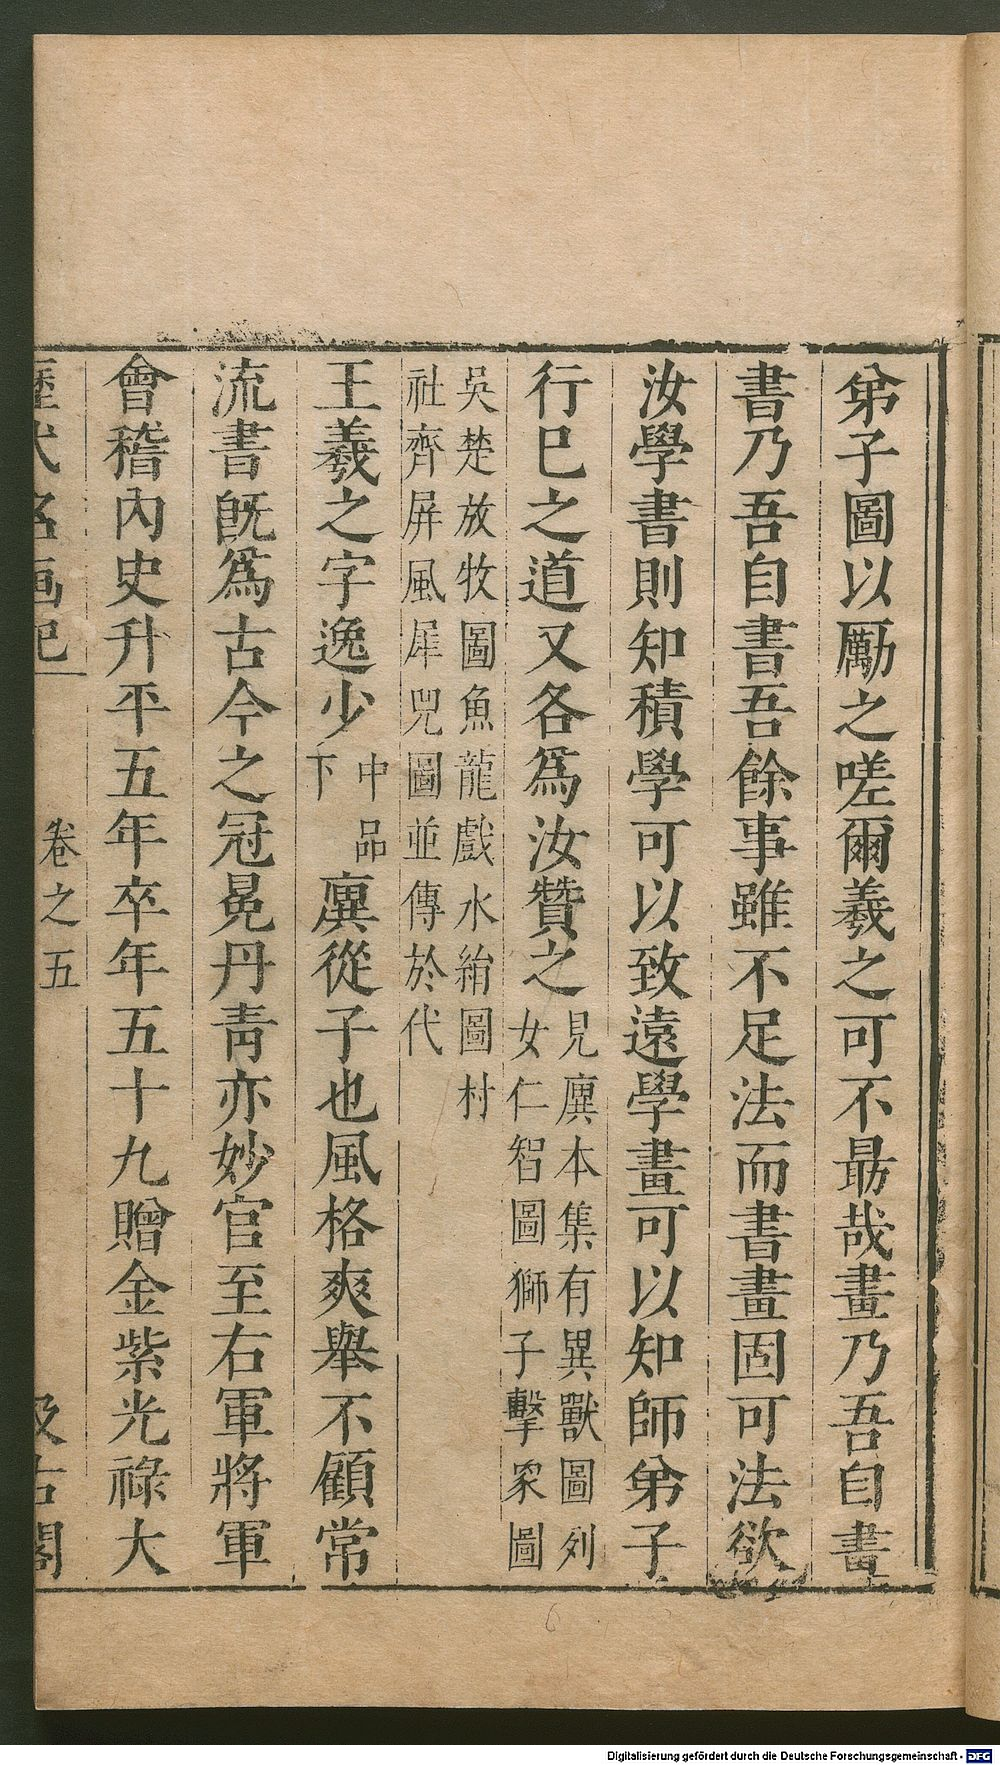 弟子圖以勵之嗟爾羲之可不勗哉畫乃吾自畫
書乃吾自書吾餘事雖不足法而書畫固可法欲
汝學書則知積學可以致遠學畫可以知師弟子
行巳之道又各爲汝贊之見廙本集有異獸圖列
女仁智圖獅子擊象圖
吳楚放牧圖魚龍戲水綃圖村
社齊屏風犀兕圖並傳於代
王羲之字逸少中品
下
廙從子也風格爽舉不顧常
流書旣爲古今之冠冕丹靑亦妙官至右軍將軍
會稽內史升平五年卒年五十九贈金紫光祿大
歷代名画記
卷之五
汲古閣
Digitalisierung gefördert durch die Deutsche Forschungsgemeinschaft - DFG